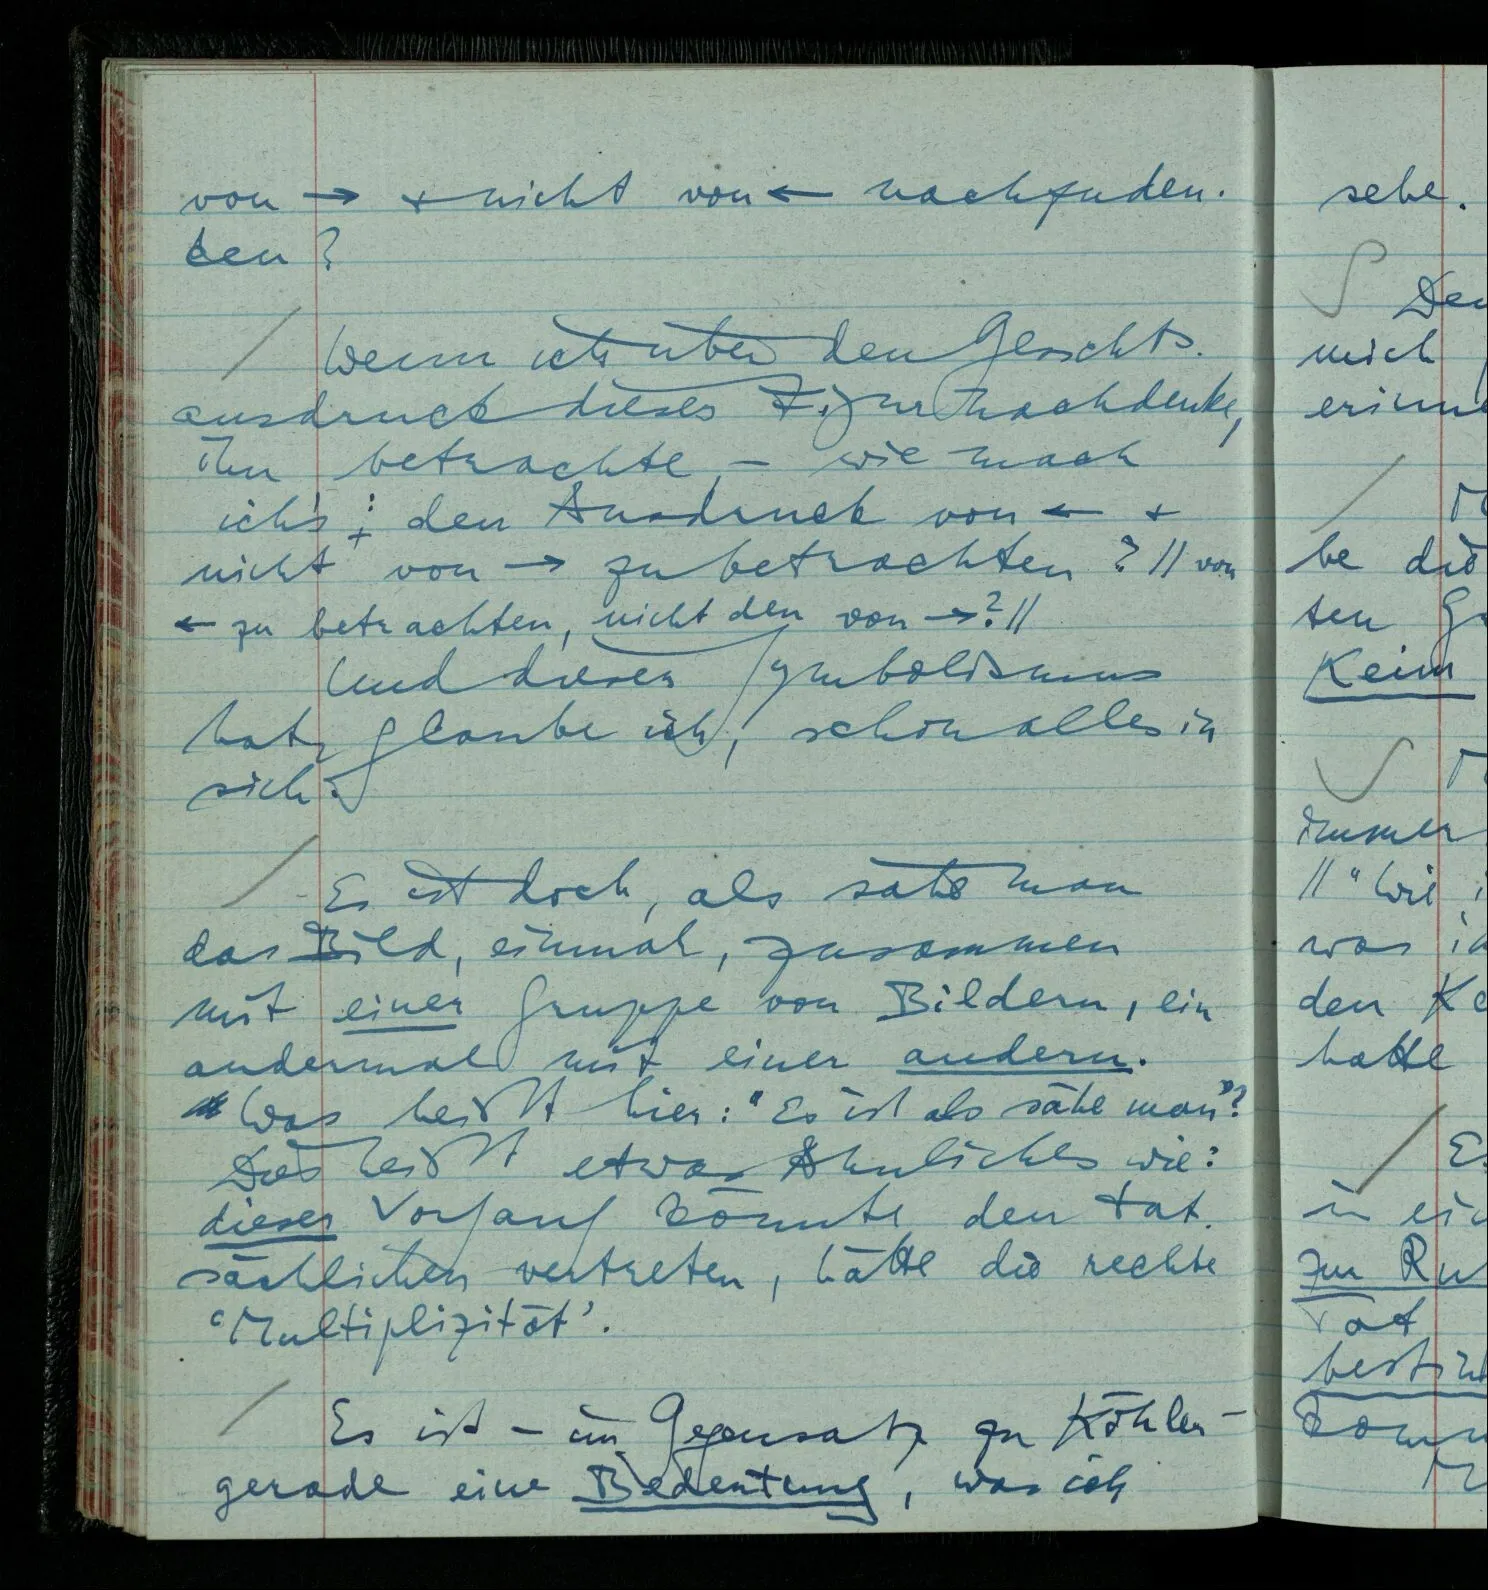 von → + nicht von ← nachzuden-
ken?
/ Wenn ich über den Gesichts-
ausdruck dieser Figur nachdenke,
ihn betrachte, – wie mach
ich's, den Ausdruck von ← +
nicht von → zu betrachten? // von
← zu betrachten, nicht den von →? //
Und dieser Symbolismus
hat, glaube ich, schon alles in
sich.
/ Es ist doch, als sähe man
das Bild, einmal, zusammen
mit einer Gruppe von Bildern, ein
andermal mit einer andern.
Was heißt hier: "Es ist als sähe man"?
Das heißt etwas Ähnliches wie:
dieser Vorgang könnte den tat-
sächlichen vertreten, hätte die rechte
'Multiplizität'.
/ Es ist – im Gegensatz zu Köhler –
gerade eine Bedeutung, was ich
sehe.
mich
be die
ten
Keim
immer
// "Wie
was
den
hatte
in
zur
Tat